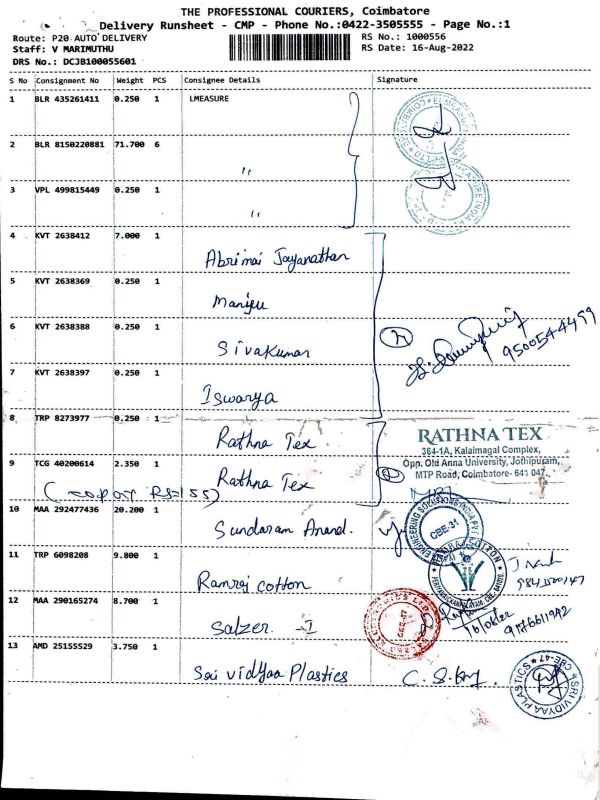 THE PROFESSIONAL COURIERS, Coimbatore
Delivery Runsheet - CMP - Phone No.:0422-3505555 - Page No.:1
Route: P20 AUTO DELIVERY
RS No.: 1000556
Staff: V MARIMUTHU
RS Date: 16-Aug-2022
DRS No.: DCJB100055601
S No Consignment No Weight PCS Consignee Details Signature
1 BLR 435261411 0.250 1 LMEASURE
2 BLR 8150220881 71.700 6
"
3 VPL 499815449 0.250 1
"
4 KVT 2638412 7.000 1
Abrimai Jayanathan
5 KVT 2638369 0.250 1
Manju
6 KVT 2638388 0.250 1
Sivakumar
9500544499
7 KVT 2638397 0.250 1
Iswarya
8 TRP 8273977 0.250 1
Rathna Tex
RATHNA TEX
364-1A, Kalaimagal Complex,
Opp. Old Anna University, Jothipuram,
MTP Road, Coimbatore- 641 047
9 TCG 40200614 2.350 1
Rathna Tex
RS=155)
10 MAA 292477436 20.200 1
Sundaram Anand.
ENGINEERING SOLUTIONS INDIA PVT
CBE-31
11 TRP 6098208 9.800 1
Ramraj cotton
12 MAA 290165274 8.700 1
Salzer - I
CBE-47
16/08/22
9176611942
13 AMD 25155529 3.750 1
Sai Vidhyaa Plastics
SRI VIDYAA PLASTICS
CBE-47